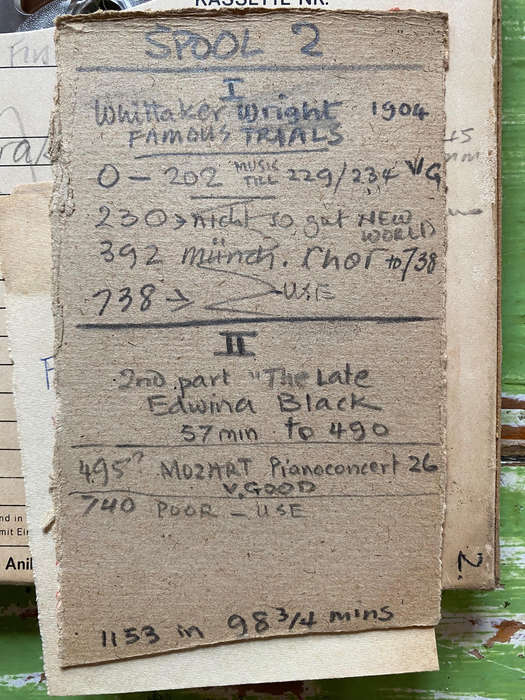 KASSETTE NR.
SPOOL 2
I
Whittaker Wright 1904
FAMOUS TRIALS
0 – 202 MUSIC TILL 229/234 V.G.
230 > nicht so gut NEW WORLD
392 Münch. Chor to 738
738 → USE
II
2nd part "The Late
Edwina Black
57 min to 490
495? MOZART Pianoconcert 26
V. GOOD
740 POOR – USE
1153 in 98 3/4 mins
N.